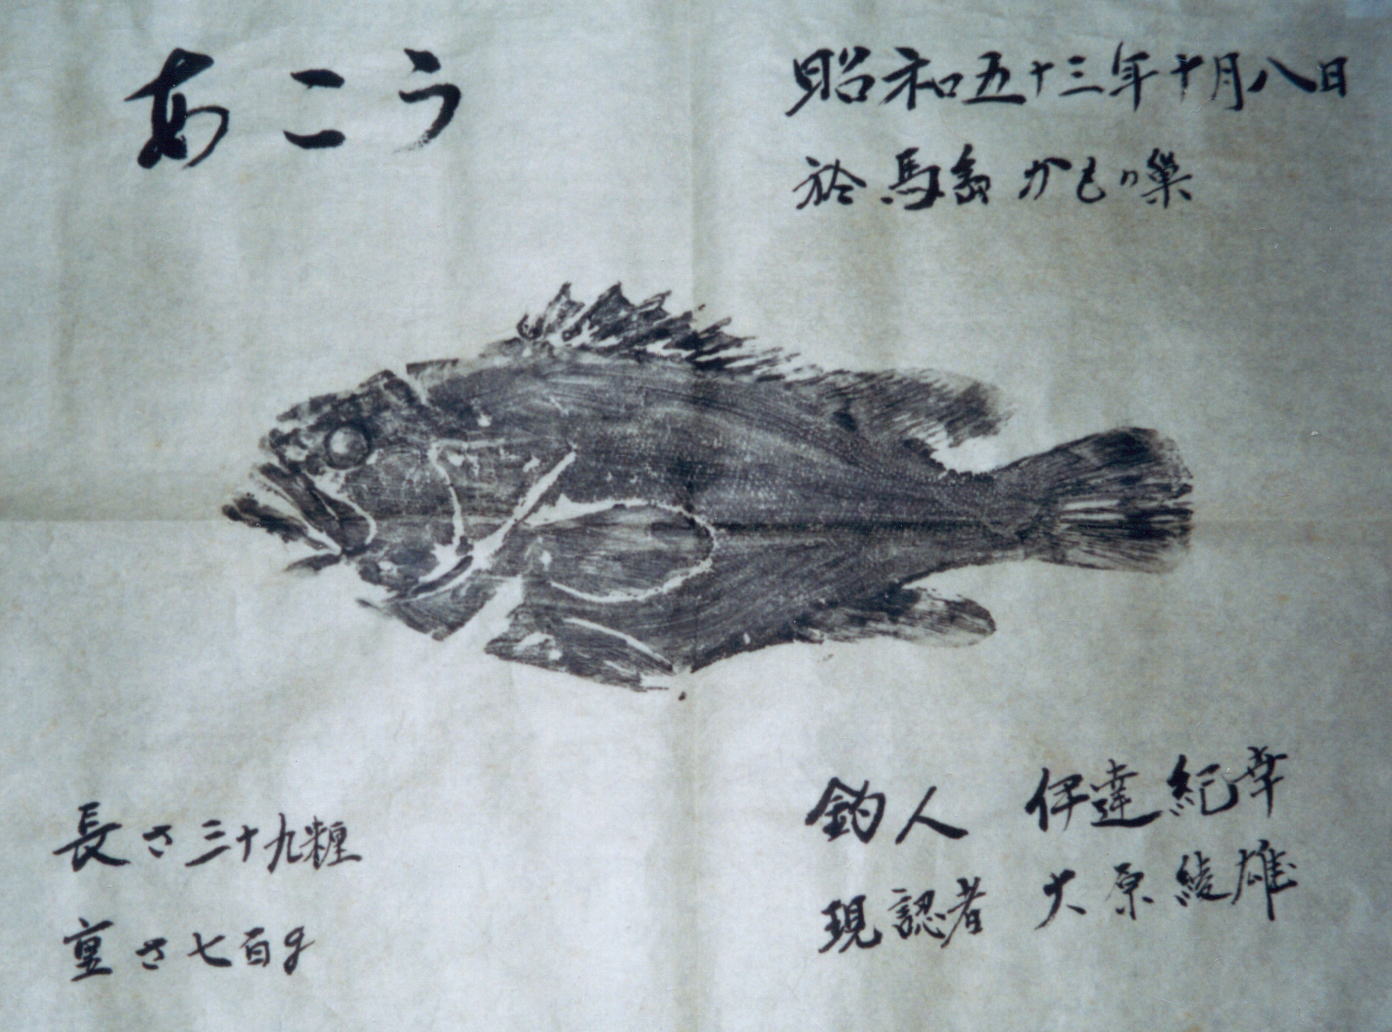 あこう
昭和五十三年十月八日
於 馬島 かもめ巣
長さ三十九糎
重さ七百g
釣人 伊達紀幸
現認者 大原綾雄